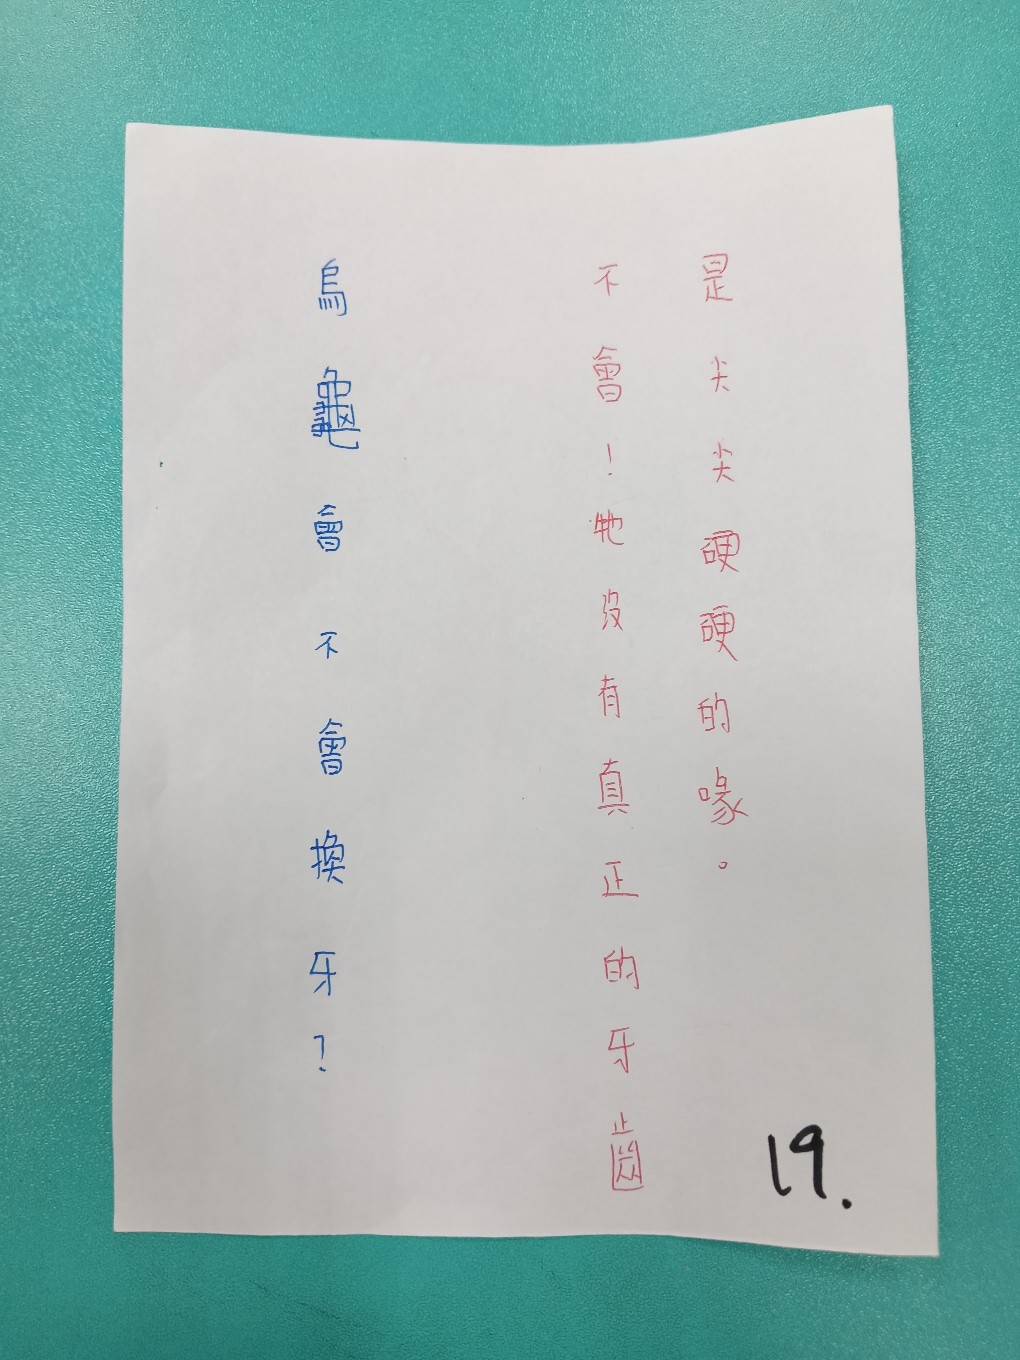 烏龜會不會換牙?
不會!牠沒有真正的牙齒
是尖尖硬硬的喙。
19.